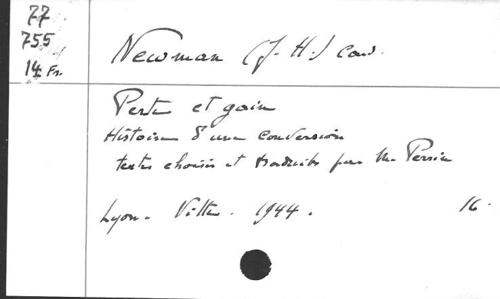 77
755
14 Fr.
Newman (J.H.) card.
Perte et gain
Histoire d'une conversion
textes choisis et traduits par M. Persin
Lyon. Vitte. 1944. 16.